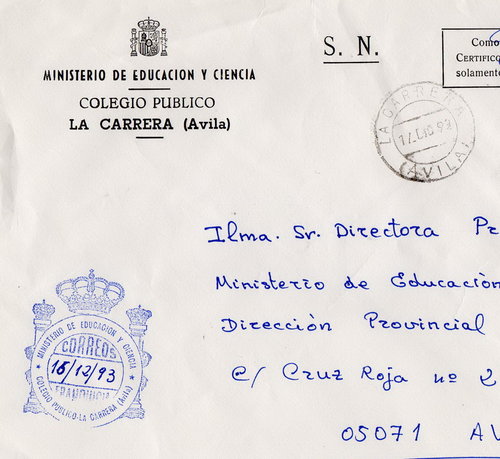 MINISTERIO DE EDUCACION Y CIENCIA
COLEGIO PUBLICO
LA CARRERA (Avila)
S. N.
Como
CERTIFICO
solamente
LA CARRERA
17.DIC 93
(AVILA)
Ilma. Sr. Directora Pr
Ministerio de Educación
Dirección Provincial
C/ Cruz Roja nº 2
05071 AV
MINISTERIO DE EDUCACION Y CIENCIA
CORREOS
16/12/93
FRANQUICIA
COLEGIO PUBLICO-LA CARRERA (Avila)